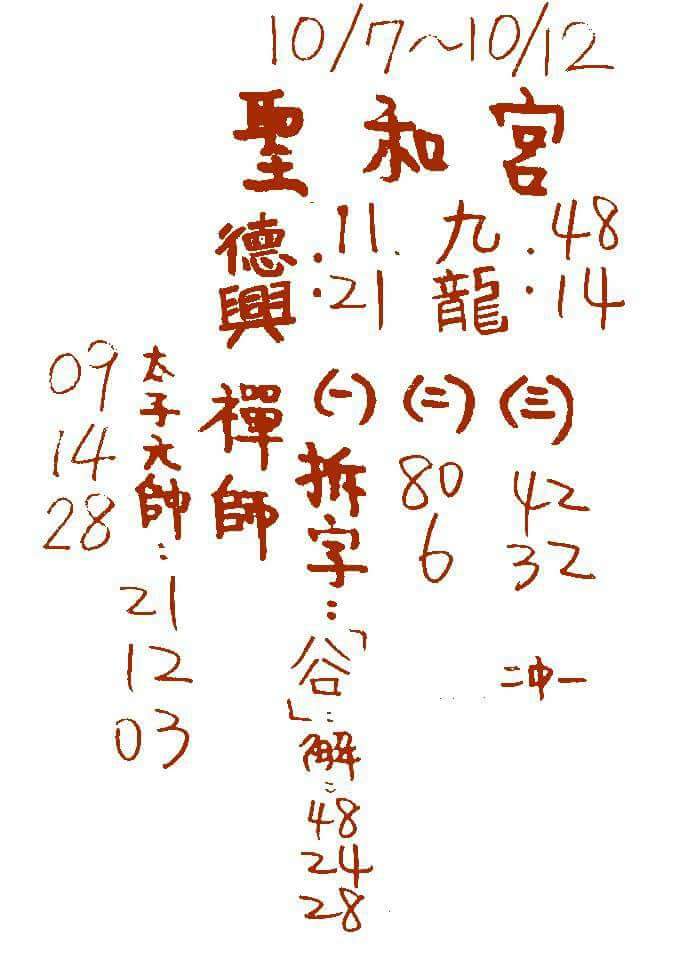 10/7~10/12
聖和宮
德興:11.21
九龍:48.14
禪師
(一)拆字:「谷」:解:48 24 28
(二)80 6
(三)42 32
二中一
太子元帥:21 12 03
09 14 28